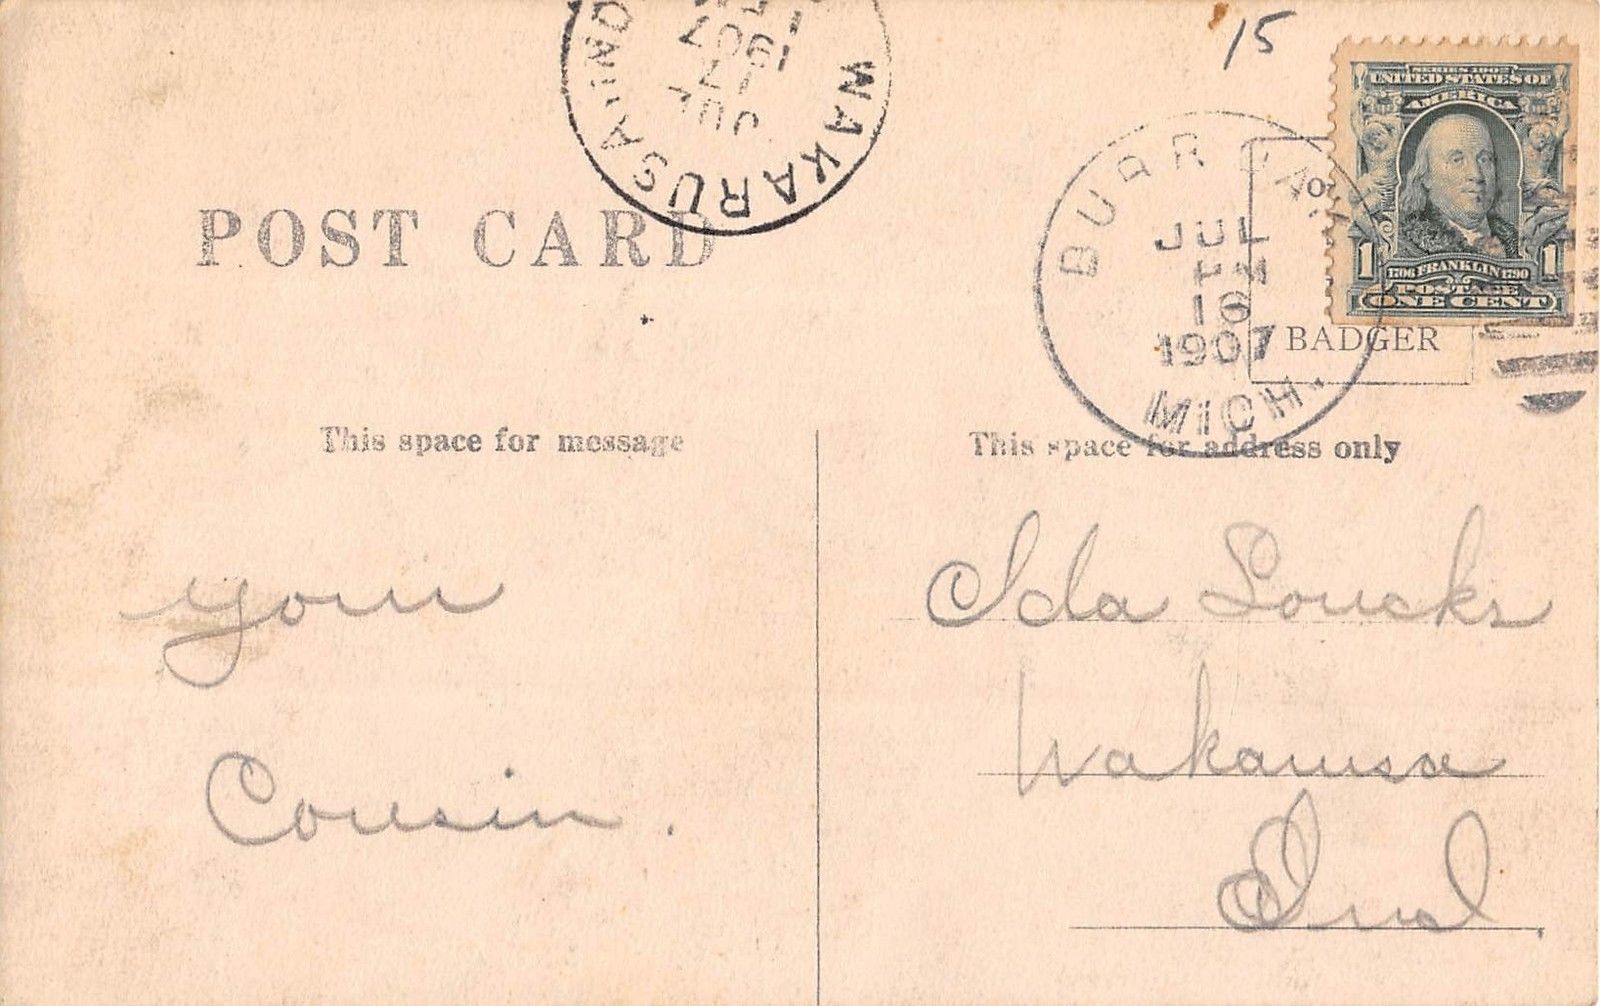 15
WAKARUSA, IND
JUL
17
1907
BURR MICH.
JUL
16
1907
SERIES 1902
UNITED STATES OF
AMERICA
1 1
1706 FRANKLIN 1790
POSTAGE
ONE CENT
BADGER
POST CARD
This space for message
This space for address only
your
Cousin.
Ida Loucks
Wakarusa
Ind.